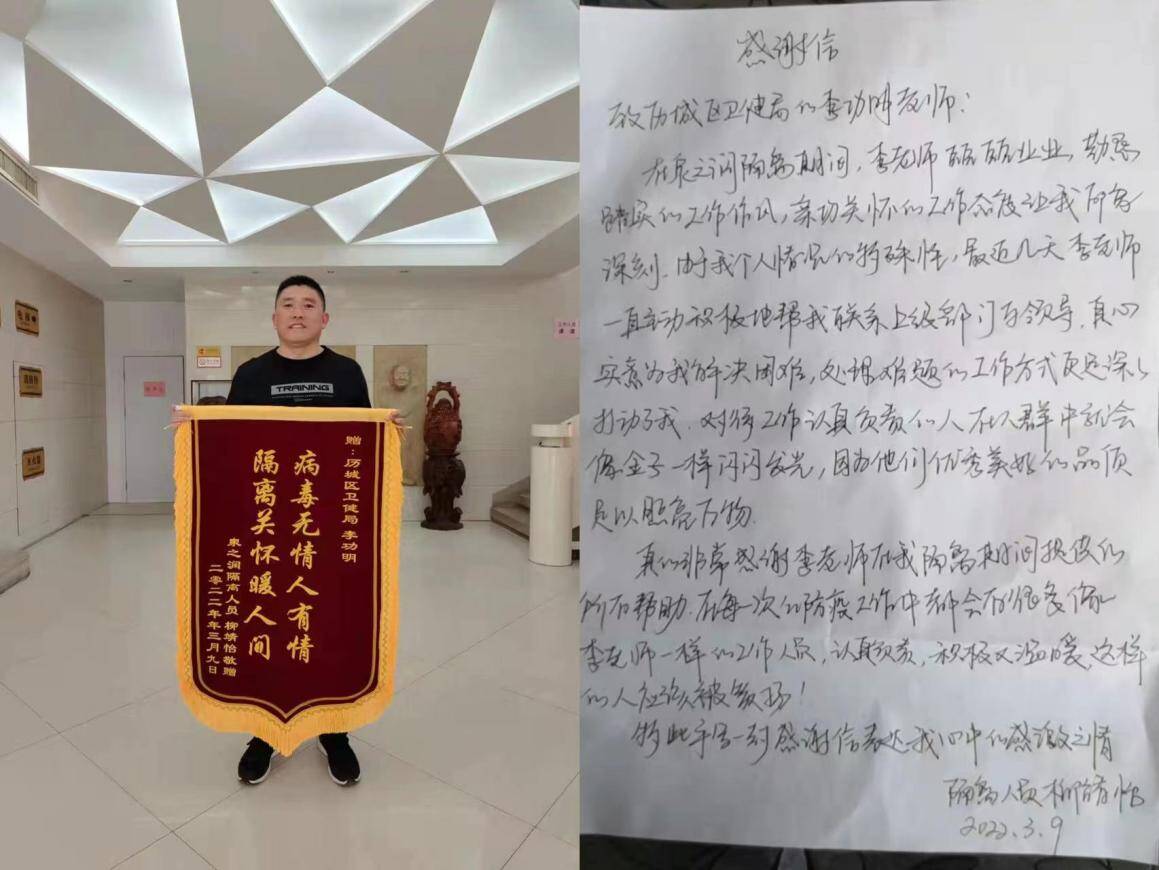 TRAINING
赠：历城区卫健局 李功明
病毒无情人有情
隔离关怀暖人间
泉之润隔离人员 柳靖怡敬赠
二零二二年三月九日
感谢信
致历城区卫健局的李功明老师：
在泉之润隔离期间，李老师兢兢业业，勤恳
踏实的工作作风，亲切关怀的工作态度让我印象
深刻。由于我个人情况的特殊性，最近几天李老师
一直主动积极地帮我联系上级部门与领导，真心
实意为我解决困难，处理难题的工作方式更是深深
打动了我。对待工作认真负责的人在人群中就会
像金子一样闪闪发光，因为他们优秀美好的品质
足以照亮万物.
真的非常感谢李老师在我隔离期间提供的
所有帮助.在每一次的防疫工作中都会有很多像
李老师一样的工作人员，认真负责，积极又温暖，这样
的人应该被颂扬！
特此手写一封感谢信表达我心中的感激之情
隔离人员柳靖怡
2022.3.9